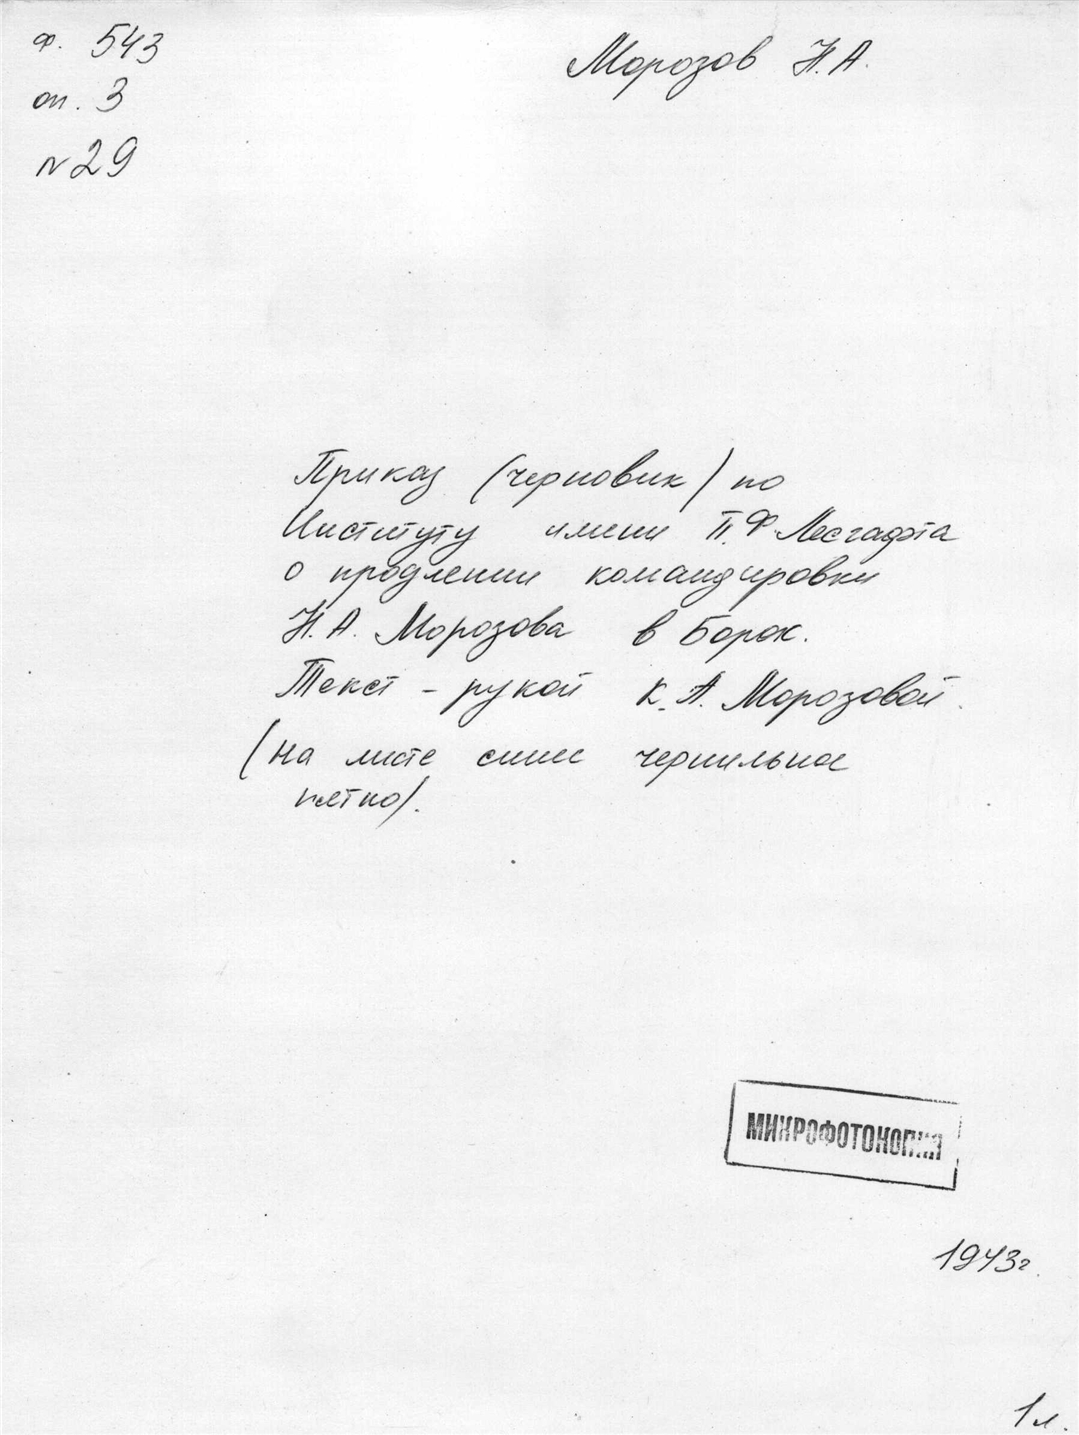 ф. 543
оп. 3
№ 29
Морозов Н. А.
Приказ (черновик) по
Институту имени П. Ф. Лесгафта
о продлении командировки
Н. А. Морозова в Борок.
Текст - рукой К. А. Морозовой.
(на листе синее чернильное
пятно).
МИКРОФОТОКОПИЯ
1943г.
1 л.